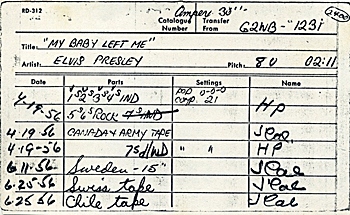 RD-312 Ampex 30"
Catalogue Number Transfer From G2WB-"1231
Title: "MY BABY LEFT ME"
Artist: ELVIS PRESLEY Pitch: 8U 02:11
Date Parts Settings Name
4-19-56 1S 2S 3S 4S IND pop 0-0-0 comp. 21 HP
5S 6S ROCK
4-19-56 CANADIAN ARMY TAPE
4-19-56 7S IND " " HP
6-11-56 Sweden - 15"
6-25-56 Swiss tape
6-25-56 Chile tape